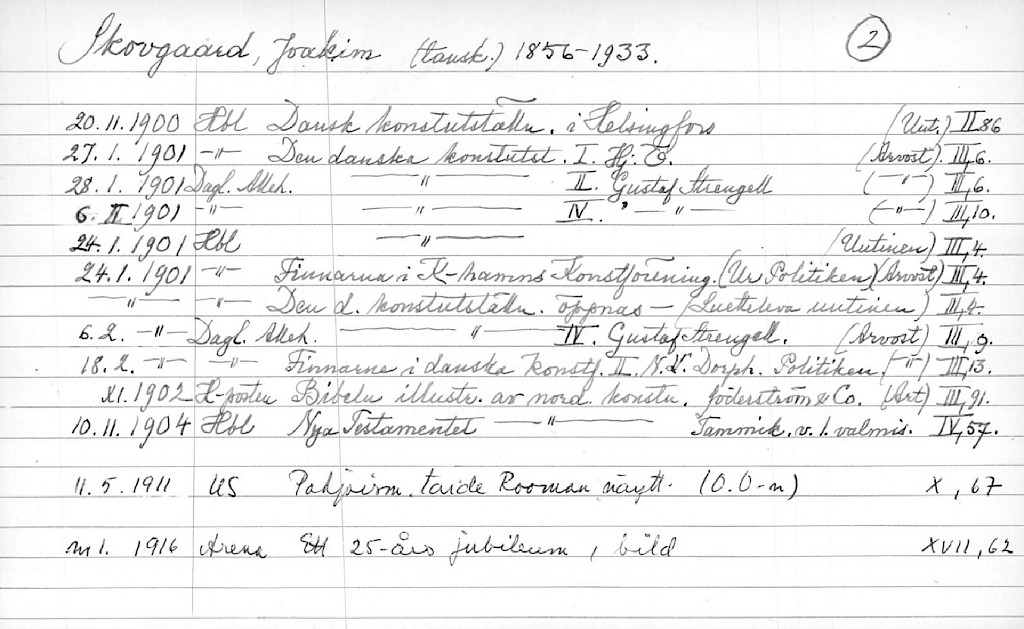 Skovgaard, Joakim (tansk.) 1856-1933. 2
20.11.1900 Hbl Dansk konstutställn. i Helsingfors (Uut.) II 86
27.1.1901 -"- Den danska konstutst. I. Hj. (Arvost). III,6.
28.1.1901 Dagl. Alleh. -"- II. Gustaf Strengell (-"-) III,6.
6.II 1901 -"- -"- IV. " -"- (-"-) III,10.
24.1.1901 Hbl -"- (Uutinen) III,4.
24.1.1901 -"- Finnarna i K-hamns Konstförening. (Ur Politiken) (Arvost) III,4.
-"- -"- Den d. konstutställn. öppnas - (Luetteleva uutinen) III,4.
6.2. -"- Dagl. Alleh. -"- IV. Gustaf Strengell. (Arvost) III,9.
18.2. -"- -"- Finnarne i danska konstf. II. N.V. Dorph. Politiken. (-"-) III,13.
XI.1902 H-posten Bibeln illustr. av nord. konstn. Söderström & Co. (Art) III,91.
10.11.1904 Hbl Nya Testamentet -"- Tammik. v. 1. valmis. IV,57.
11.5.1911 US Pohjoism. taide Rooman näytt. (O.O-n) X, 67
n:o 1. 1916 Arena Ett 25-års jubileum, bild XVII, 62